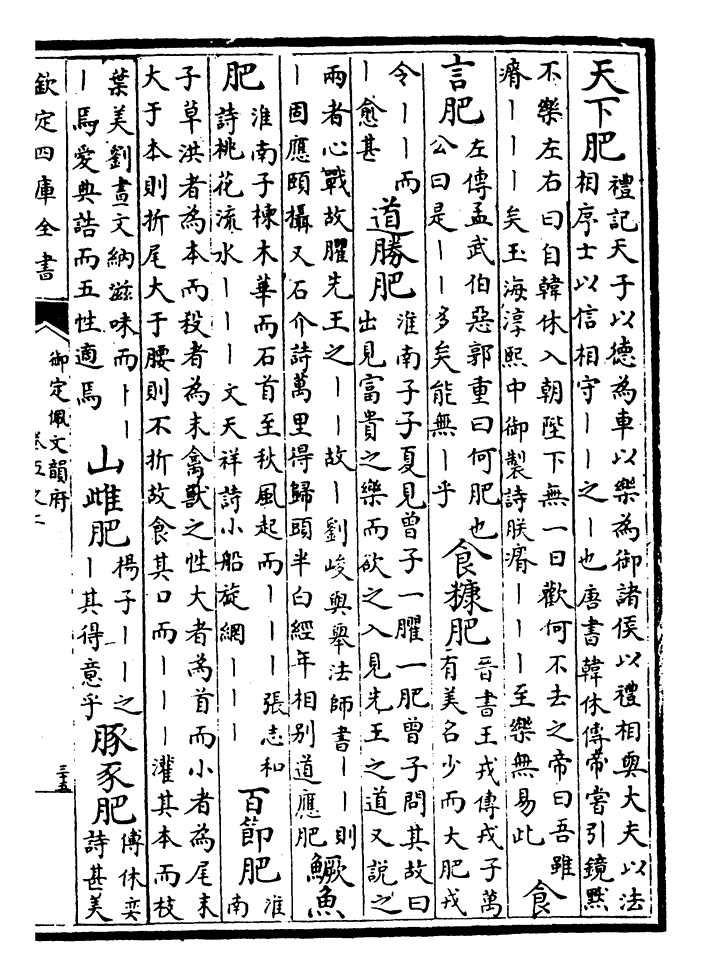 天下肥
禮記天子以德為車以樂為御諸侯以禮相與大夫以法
相序士以信相守丨丨之丨也唐書韓休傳帝嘗引鏡默
不樂左右曰自韓休入朝陛下無一日歡何不去之帝曰吾雖
瘠丨丨丨矣玉海淳熙中御製詩朕瘠丨丨丨至樂無易此
食
言肥
左傳孟武伯惡郭重曰何肥也
公曰是丨丨多矣能無丨乎
食糠肥
晉書王戎傳戎子萬
有美名少而大肥戎
令丨丨而
丨愈甚
道勝肥
淮南子子夏見曾子一臞一肥曾子問其故曰
出見富貴之樂而欲之入見先王之道又說之
兩者心戰故臞先王之丨丨故丨劉峻與舉法師書丨丨則
丨固應頤攝又石介詩萬里得歸頭半白經年相別道應肥
鱖魚
肥
淮南子楝木華而石首至秋風起而丨丨丨張志和
詩桃花流水丨丨丨文天祥詩小船旋網丨丨丨
百節肥
淮
南
子草洪者為本而殺者為末禽獸之性大者為首而小者為尾末
大于本則折尾大于腰則不折故食其口而丨丨丨灌其本而枝
葉美劉晝文納滋味而丨丨
丨焉愛典誥而五性適焉
山雌肥
楊子丨丨之
丨其得意乎
豚豕肥
傅休奕
詩甚美
欽定四庫全書
御定佩文韻府
卷五之二
三十五